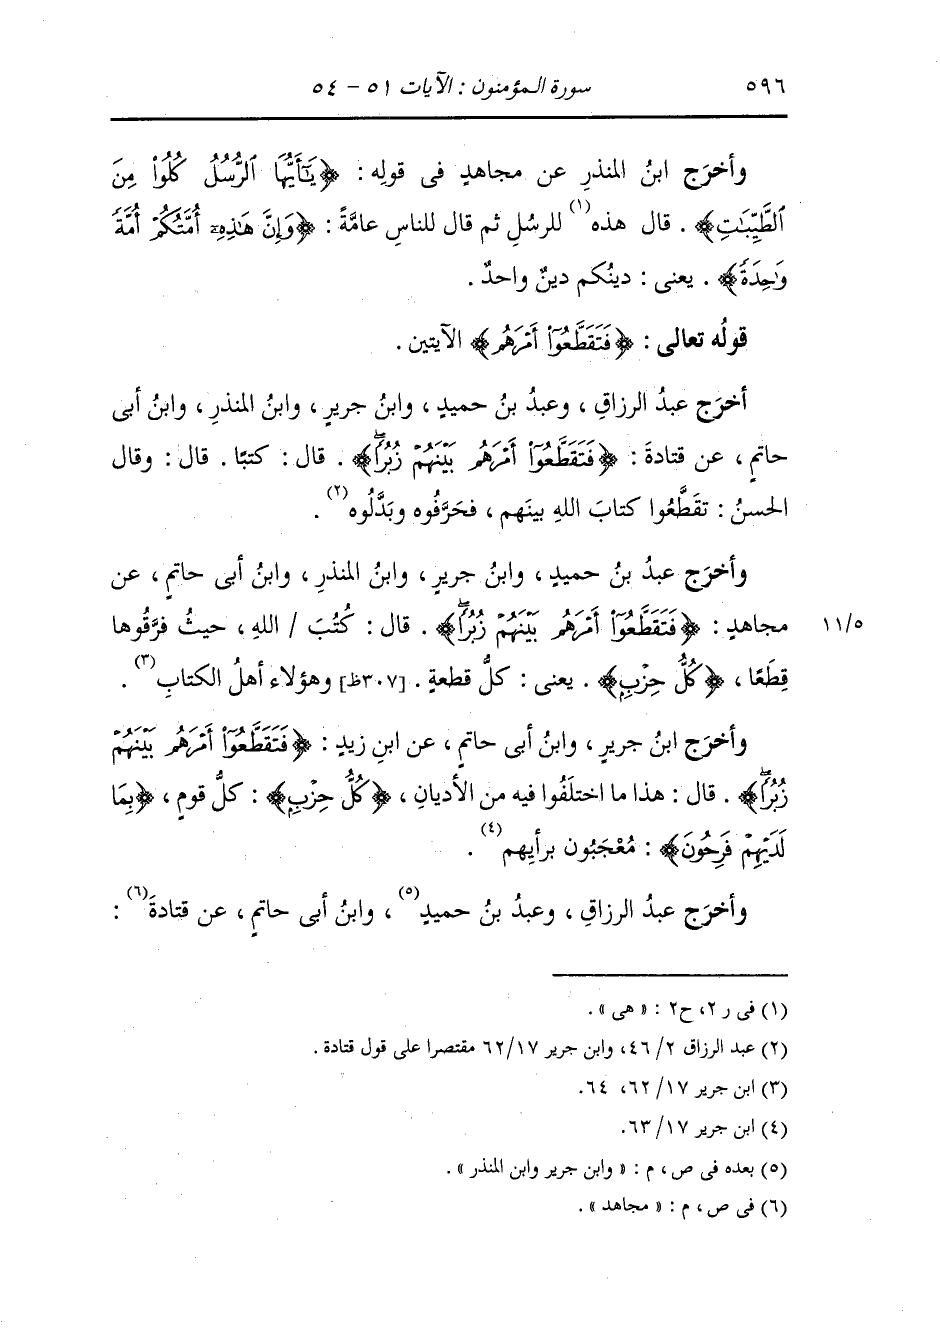 ٥٩٦ سورة المؤمنون : الآيات ٥١ - ٥٤
وأخرَج ابنُ المنذرِ عن مجاهدٍ فى قولِه : ﴿يَٰٓأَيُّهَا ٱلرُّسُلُ كُلُوا۟ مِنَ
ٱلطَّيِّبَٰتِ﴾ . قال هذه(١) للرسُلِ ثم قال للناسِ عامَّةً : ﴿وَإِنَّ هَٰذِهِۦٓ أُمَّتُكُمْ أُمَّةً
وَٰحِدَةً﴾ . يعنى : دينُكم دينٌ واحدٌ .
قولُه تعالى : ﴿فَتَقَطَّعُوٓا۟ أَمْرَهُم﴾ الآيتين .
أخرَج عبدُ الرزاقِ ، وعبدُ بنُ حميدٍ ، وابنُ جريرٍ ، وابنُ المنذرِ ، وابنُ أبى
حاتمٍ ، عن قتادةَ : ﴿فَتَقَطَّعُوٓا۟ أَمْرَهُم بَيْنَهُمْ زُبُرًا ۖ﴾ . قال : كتبًا . قال : وقال
الحسنُ : تقَطَّعُوا كتابَ اللهِ بينَهم ، فحَرَّفُوه وبَدَّلُوه(٢) .
وأخرَج عبدُ بنُ حميدٍ ، وابنُ جريرٍ ، وابنُ المنذرِ ، وابنُ أبى حاتمٍ ، عن
مجاهدٍ : ﴿فَتَقَطَّعُوٓا۟ أَمْرَهُم بَيْنَهُمْ زُبُرًا ۖ﴾ . قال : كُتُبَ / اللهِ ، حيثُ فرَّقُوها ١١/٥
قِطَعًا ، ﴿كُلُّ حِزْبٍ﴾ . يعنى : كلُّ قطعةٍ . [٣٠٧ظ] وهؤلاء أهلُ الكتابِ(٣) .
وأخرَج ابنُ جريرٍ ، وابنُ أبى حاتمٍ ، عن ابنِ زيدٍ : ﴿فَتَقَطَّعُوٓا۟ أَمْرَهُم بَيْنَهُمْ
زُبُرًا ۖ﴾ . قال : هذا ما اختلَفُوا فيه من الأديانِ ، ﴿كُلُّ حِزْبٍ﴾ : كلُّ قومٍ ، ﴿بِمَا
لَدَيْهِمْ فَرِحُونَ﴾ : مُعْجَبُون برأيِهم(٤) .
وأخرَج عبدُ الرزاقِ ، وعبدُ بنُ حميدٍ(٥) ، وابنُ أبى حاتمٍ ، عن قتادةَ(٦) :
(١) فى ر ٢، ح٢ : « هى » .
(٢) عبد الرزاق ٢/ ٤٦، وابن جرير ٦٢/١٧ مقتصرا على قول قتادة .
(٣) ابن جرير ١٧/ ٦٢، ٦٤.
(٤) ابن جرير ١٧/ ٦٣.
(٥) بعده فى ص ، م : « وابن جرير وابن المنذر » .
(٦) فى ص ، م : « مجاهد » .